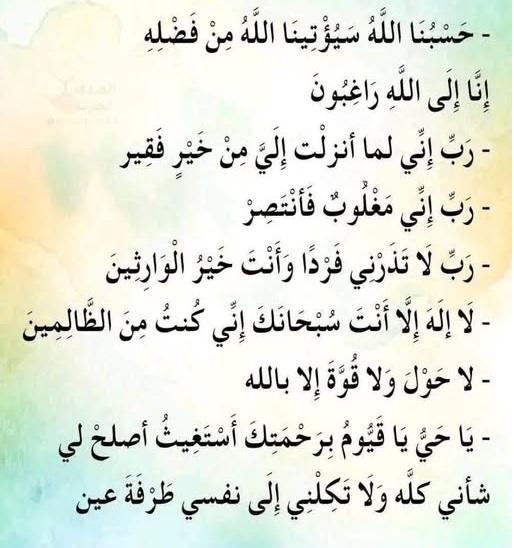 - حَسْبُنَا اللَّهُ سَيُؤْتِينَا اللَّهُ مِنْ فَضْلِهِ
إِنَّا إِلَى اللَّهِ رَاغِبُونَ
- رَبِّ إِنِّي لما أنزلْت إِلَيَّ مِنْ خَيْرٍ فَقِير
- رَبِّ إِنِّي مَغْلُوبٌ فَأَنْتَصِرْ
- رَبِّ لَا تَذَرْنِي فَرْدًا وَأَنْتَ خَيْرُ الْوَارِثِينَ
- لَا إِلَهَ إِلَّا أَنْتَ سُبْحَانَكَ إِنِّي كُنتُ مِنَ الظَّالِمِينَ
- لا حَوْلَ وَلا قُوَّةَ إِلا بالله
- يَا حَيُّ يَا قَيُّومُ بِرَحْمَتِكَ أَسْتَغِيثُ أصلحْ لي
شأني كلَّه وَلَا تَكِلْنِي إِلَى نفسي طَرْفَةَ عين